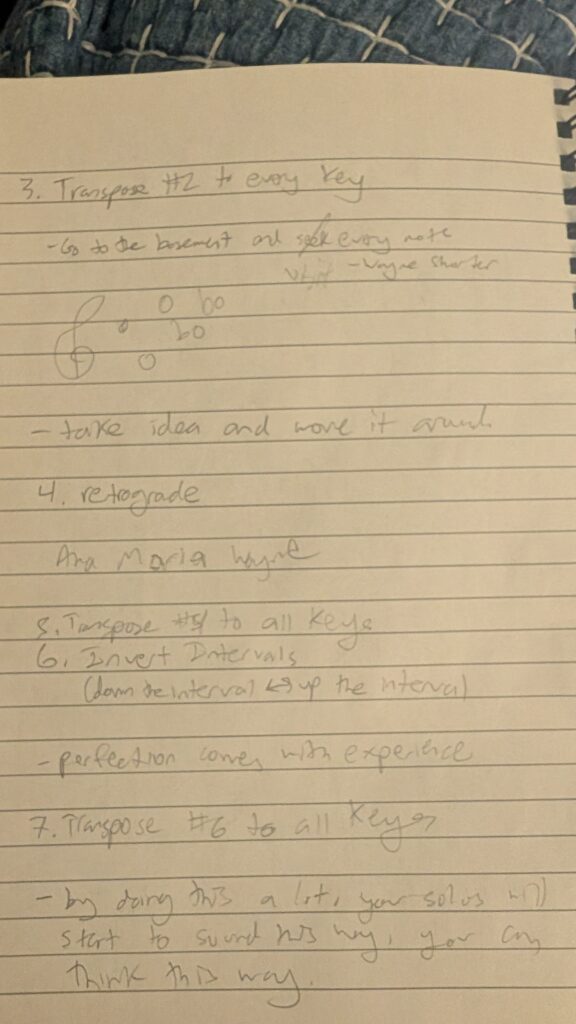 3. Transpose #2 to every key
- Go to the basement and seek every note
- Wayne Shorter
- take idea and move it around
4. retrograde
Ana Maria Wayne
5. Transpose #4 to all keys
6. Invert Intervals
(down the interval ↔ up the interval)
- perfection comes with experience
7. Transpose #6 to all keys
- by doing this a lot, your solos will
start to sound this way, you can
think this way.